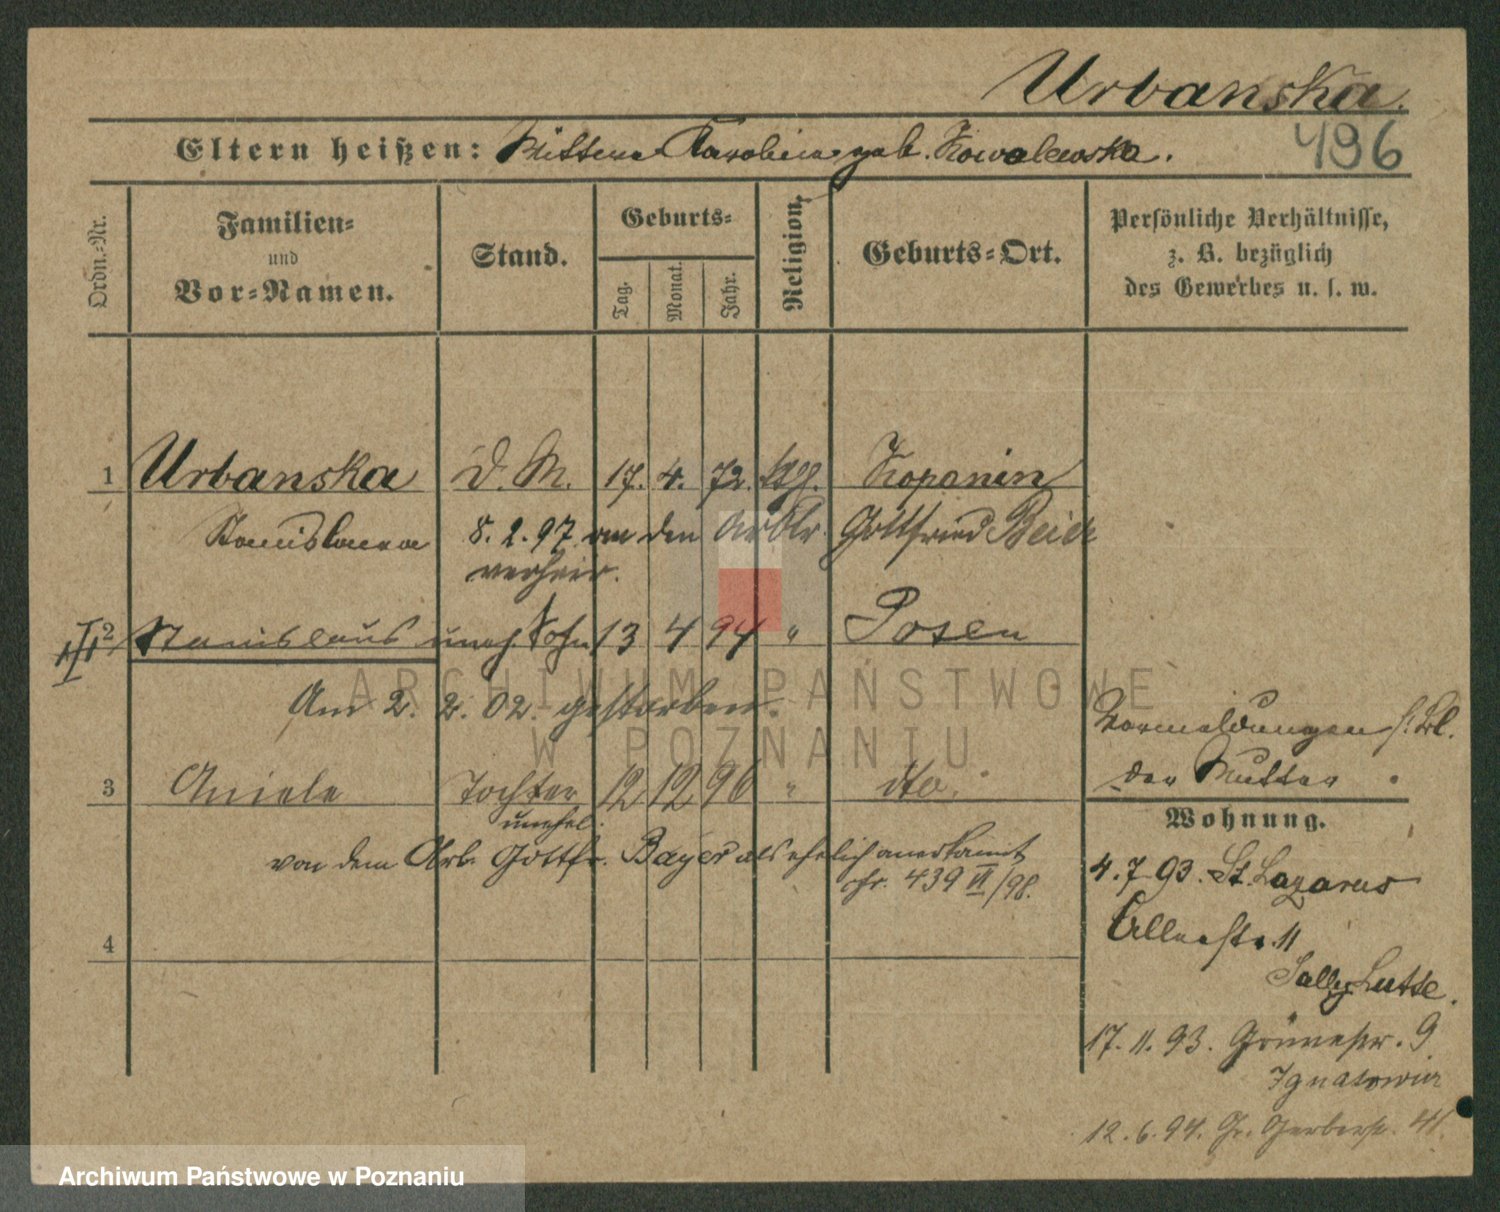 Urbanska.
Eltern heißen: Mutter Karoline geb. Kowalewska.
496
Ordn.-Nr.
Familien-
und
Vor-Namen.
Stand.
Geburts-
Tag.
Monat.
Jahr.
Religion.
Geburts-Ort.
Persönliche Verhältnisse,
z. B. bezüglich
des Gewerbes u. s. w.
1 Urbanska D. M. 17. 4. 72. ktg. Kopanin
Stanislawa 8. 2. 97. an den Arbtr. Gottfried Beier
verheir.
2 Stanislaus uneh. Sohn 13 4 94 " Posen
Am 2. 2. 02. gestorben.
3 Aniela Tochter 12 12 96 " dto.
unehel.
von dem Arb. Gottfr. Bayer als ehelich anerkannt
439 VI/98.
4
Vormeldungen s. Bl.
der Mutter
Wohnung.
4.7.93. St. Lazarus
17.11.93. Grünestr. 9
Ignatowicz
12.6.94. Gr. Gerberstr. 41
ARCHIWUM PAŃSTWOWE
W POZNANIU
Archiwum Państwowe w Poznaniu